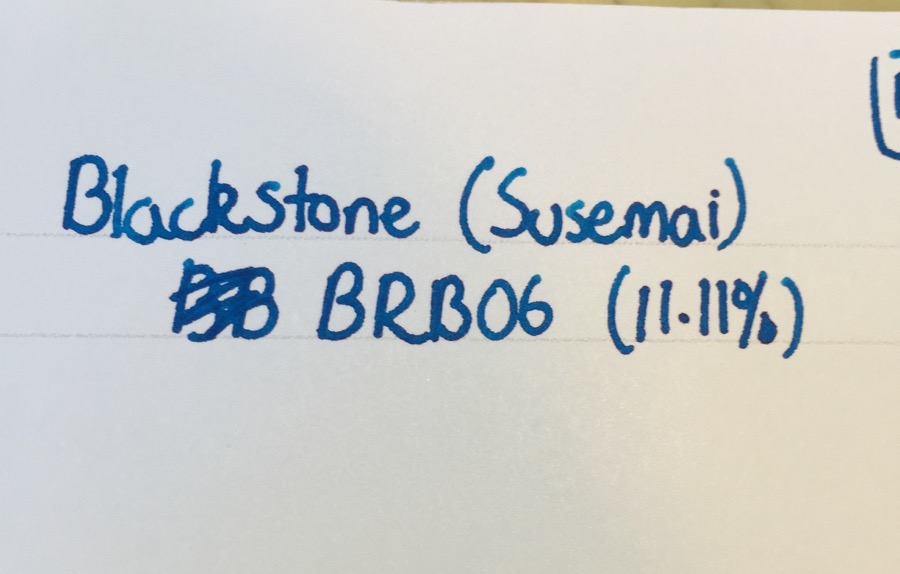 Blackstone (Susemai)
BRB06 (11.11%)